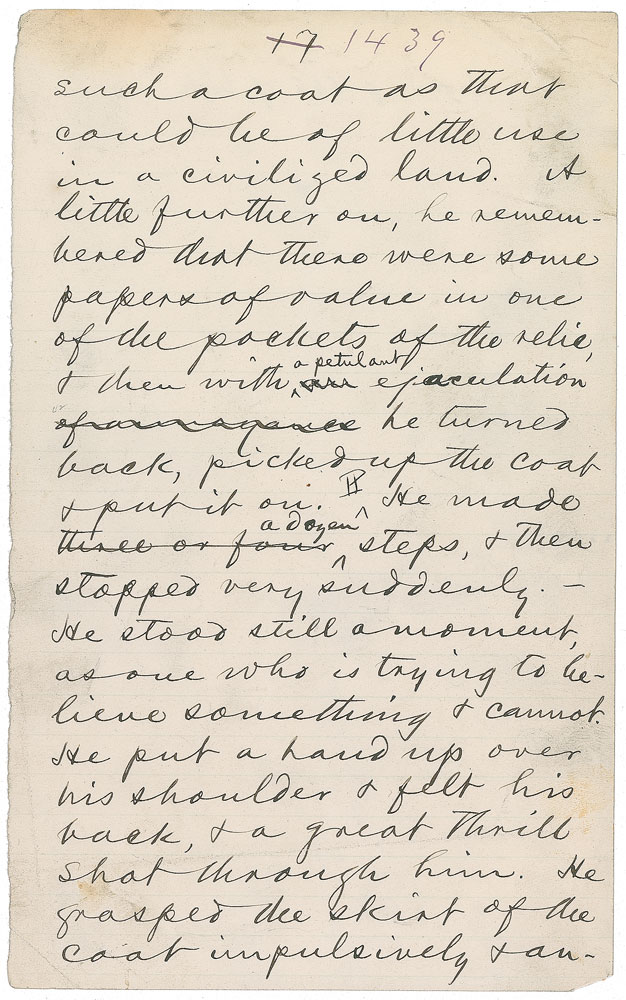 17 1439
such a coat as that
could be of little use
in a civilized land. A
little further on, he remem-
bered that there were some
papers of value in one
of the pockets of the relic,
a petulant
& then with ejaculation
of annoyance he turned
back, picked up the coat
& put it on. ¶ He made
a dozen
three or four steps, & then
stopped very suddenly. —
He stood still a moment,
as one who is trying to be-
lieve something & cannot.
He put a hand up over
his shoulder & felt his
back, & a great thrill
shot through him. He
grasped the skirt of the
coat impulsively & an-